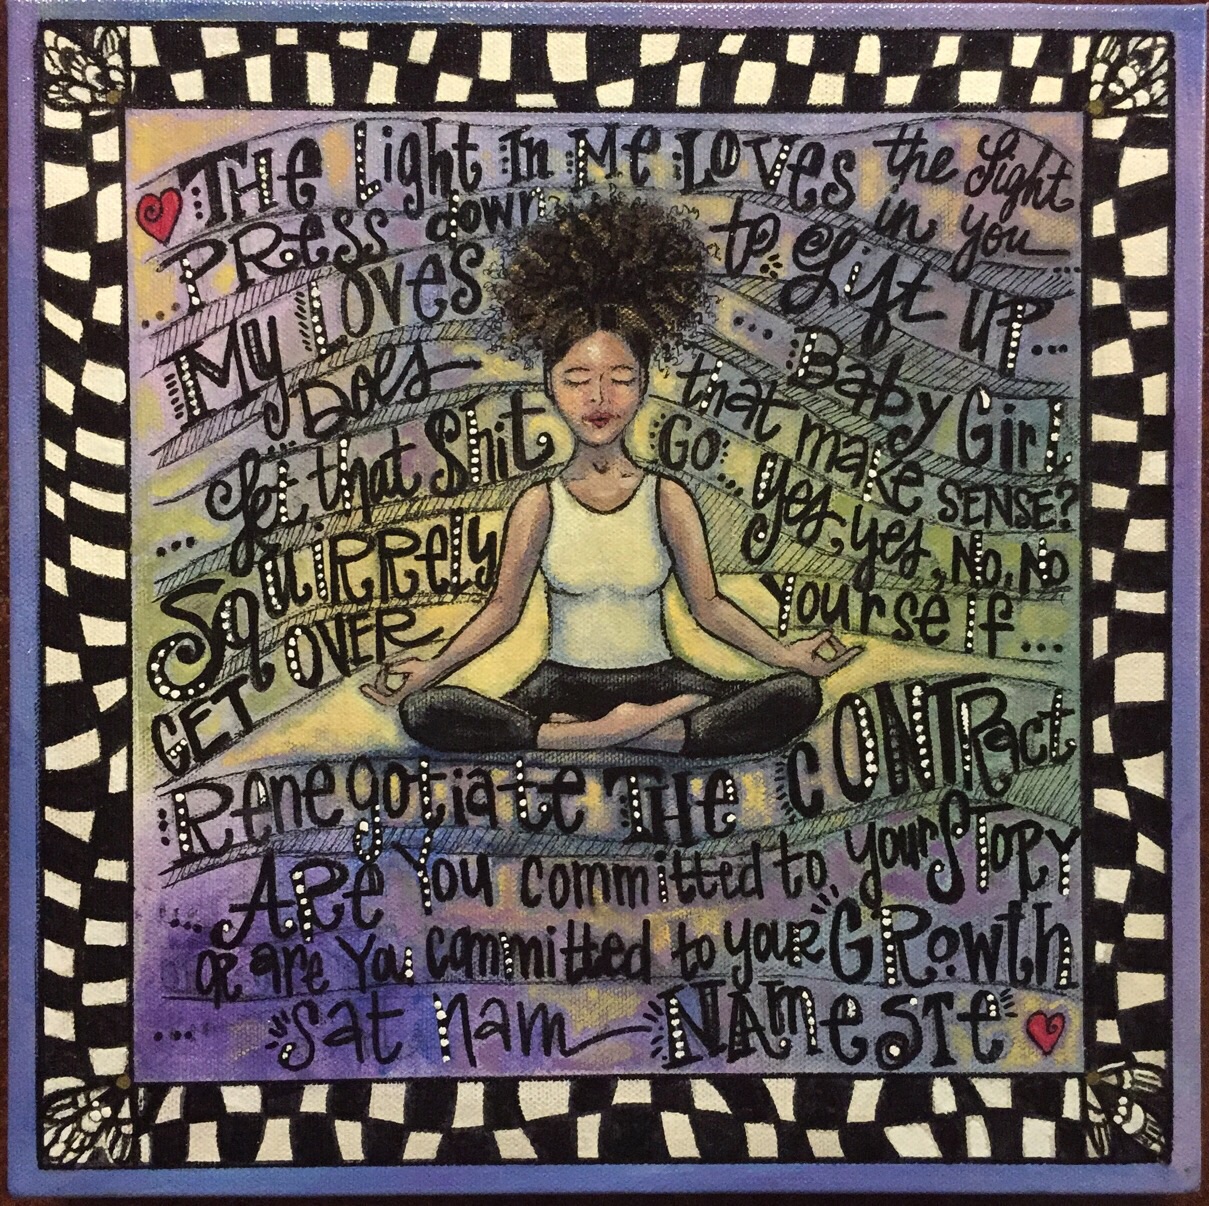 THe Light In Me LOVes the Light
in you
PRess down to lift UP...
My Loves ... Baby Girl
Does that make SENSE?
Let that Shit Go... yes, yes, No, No
... Squirrely
GET OVER Yourself...
Renegotiate THe CONTRact
... ARe You committed to your STORY
OR are You committed to your GRowth
.... sat nam — NAmeSTe